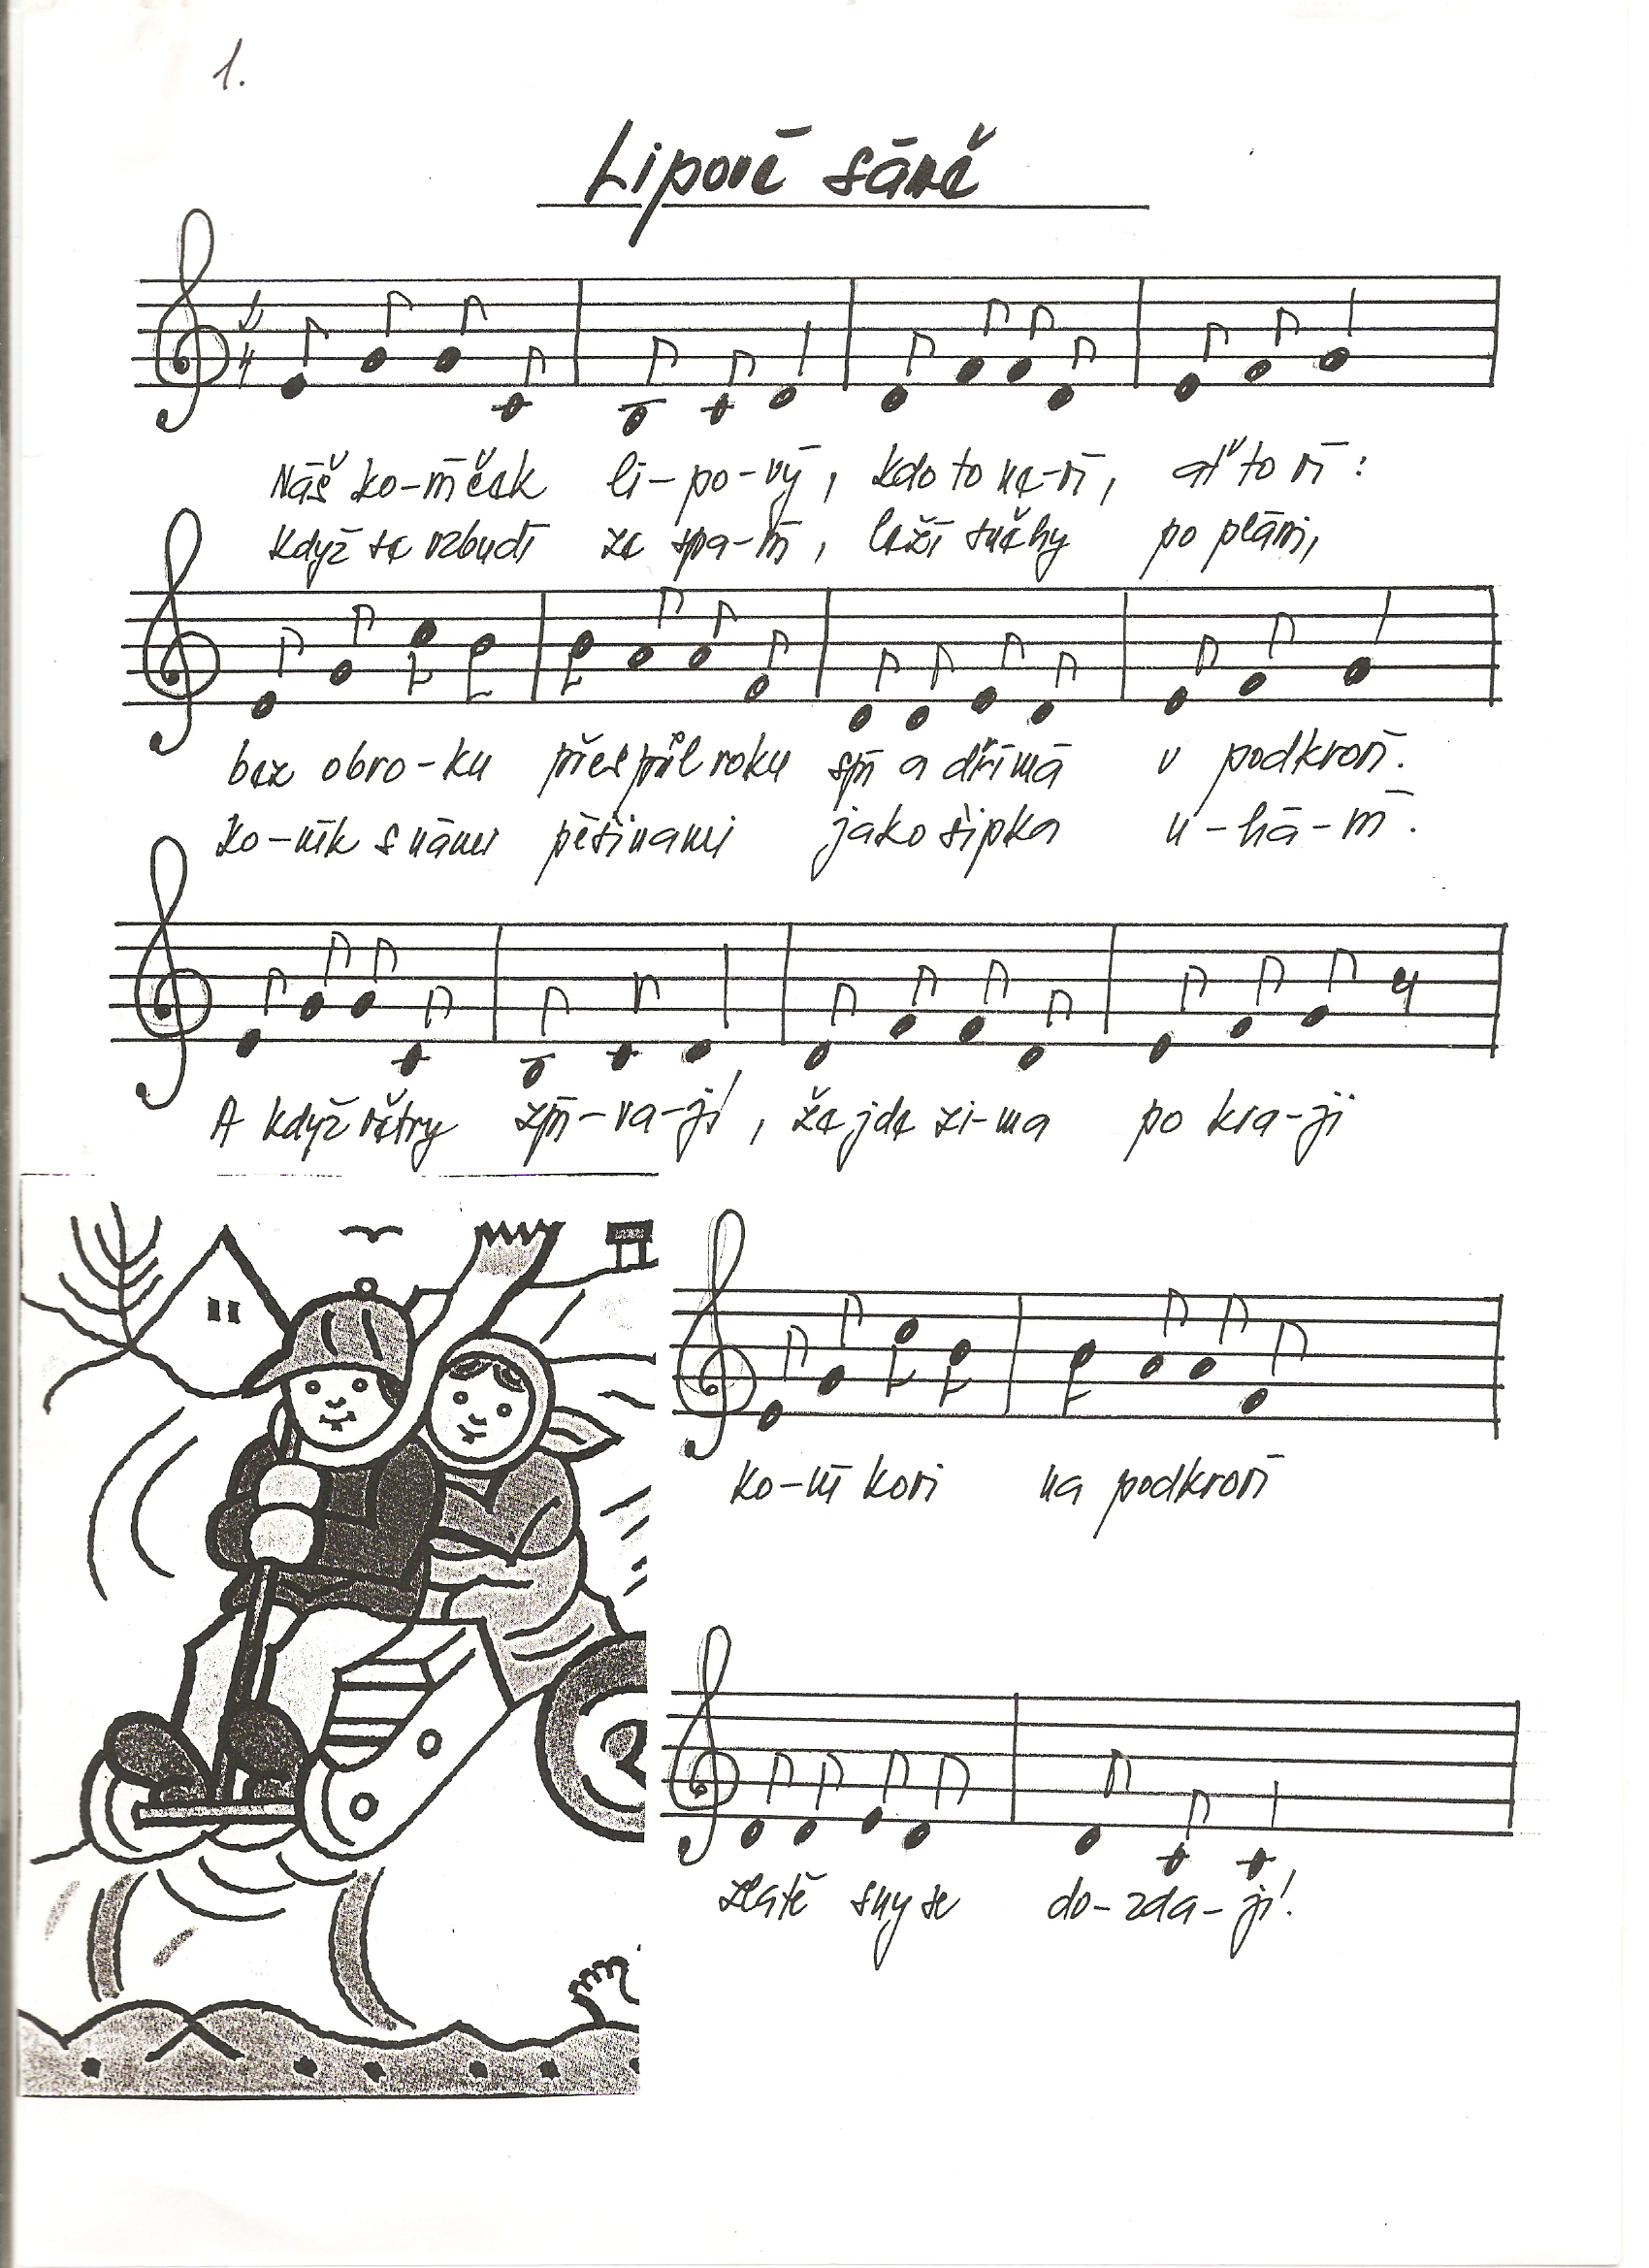 1.
Lipové sáně
2
4
Náš ko-níček li-po-vý, kdo to ne-ví, ať to ví:
když se vzbudí ze spa-ní, leží sněhy po pláni,
bez obro-ku přes půl roku spí a dřímá v podkroví.
ko-ník s námi pěšinami jako šipka u-há-ní.
A když větry zpí-va-jí, že jde zi-ma po kra-ji
ko-ní kovi na podkroví
zlaté sny se do-zda-jí!